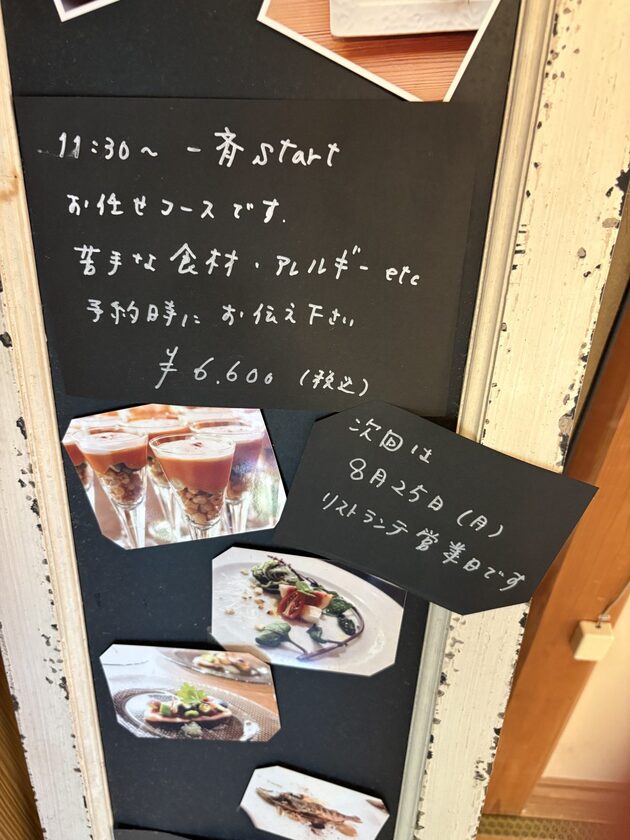 11:30～ 一斉 start
お任せコースです.
苦手な食材・アレルギー etc
予約時に お伝え下さい
¥ 6.600 (税込)
次回は
8月25日(月)
リストランテ営業日です